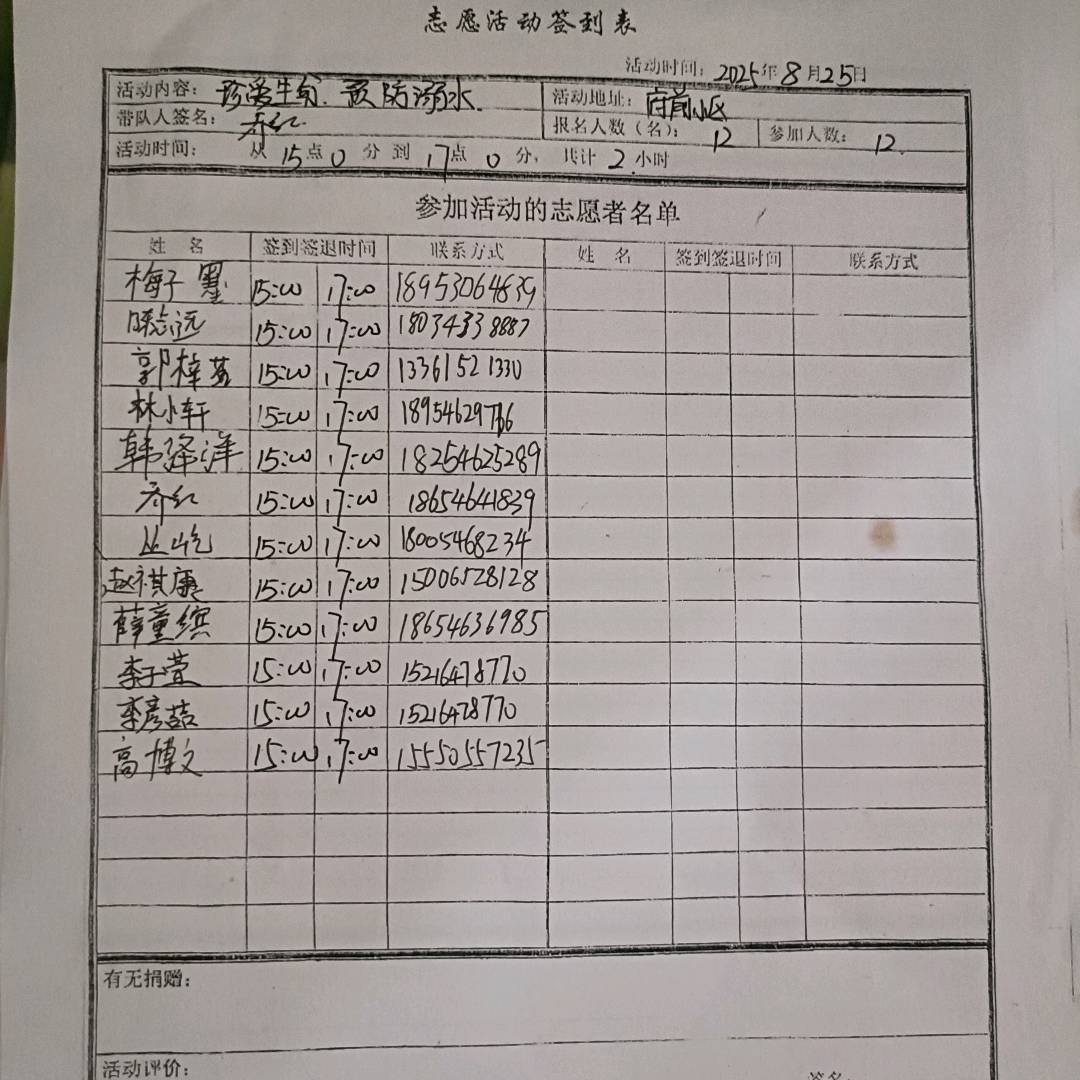 志愿活动签到表
活动时间：2025年8月25日
活动内容：珍爱生命、预防溺水 活动地址：府前小区
带队人签名：乔红 报名人数（名）：12 参加人数：12
活动时间： 从15点0分到17点0分，共计2小时
参加活动的志愿者名单
姓 名 签到签退时间 联系方式 姓 名 签到签退时间 联系方式
梅子墨 15:00 17:00 18953064839
志远 15:00 17:00 18034338887
郭梓 15:00 17:00 13361521330
林小轩 15:00 17:00
韩泽洋 15:00 17:00 18254625289
乔红 15:00 17:00 18654641839
丛屹 15:00 17:00 18005468234
赵祺康 15:00 17:00 15006528128
薛童缤 15:00 17:00 18654636985
李子萱 15:00 17:00 15216478770
李彦喆 15:00 17:00 1521678770
高博文 15:00 17:00 15550557235
有无捐赠：
活动评价：
签名：